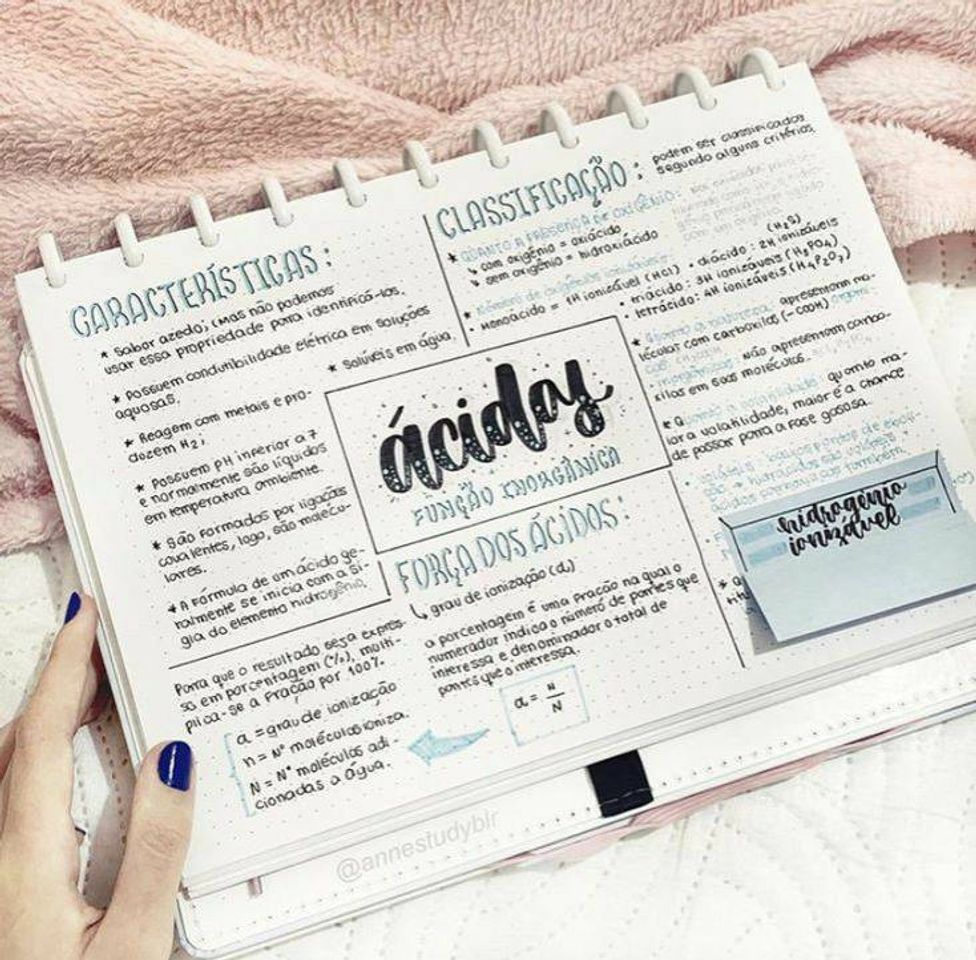 CARACTERÍSTICAS:
* Sabor azedo; (mas não podemos
usar essa propriedade para identificá-los.
* Possuem condutibilidade elétrica em soluções
aquosas.
* Solúveis em água.
* Reagem com metais e pro-
duzem H₂;
* Possuem pH inferior a 7
e normalmente são líquidos
em temperatura ambiente.
* São formados por ligações
covalentes, logo, são molecu-
lares.
* A fórmula de um ácido ge-
ralmente se inicia com a si-
gla do elemento hidrogênio.
CLASSIFICAÇÃO: podem ser classificados
segundo alguns critérios.
* QUANTO A PRESENÇA DE OXIGÊNIO:
↳ com oxigênio = oxiácido
↳ sem oxigênio = hidroxiácido
* Número de hidrogênios ionizáveis:
• monoácido = 1H ionizável (HCl)
(H₂S)
• diácido: 2H ionizáveis
• triácido: 3H ionizáveis (H₃PO₄)
• tetrácido: 4H ionizáveis (H₄P₂O₇)
* Quanto a natureza: apresentam mo-
lécular com carboxilas (-COOH)
não apresentam carbo-
xilas em suas moléculas.
* Quanto a volatilidade: quanto ma-
iora volatilidade, maior é a chance
de passar para a fase gasosa.
hidrogênio
ionizável
ácidos
FUNÇÃO INORGÂNICA
FORÇA DOS ÁCIDOS:
↳ grau de ionização (α)
a porcentagem é uma fração na qual o
numerador indica o número de partes que
interessa e denominador o total de
partes que o interessa.
α = n/N
Para que o resultado seja expres-
so em porcentagem (%), multi-
plica-se a fração por 100%.
α = grau de ionização
n = Nº moléculas ioniza.
N = Nº moléculas adi-
cionadas a água.
@annestudyblr